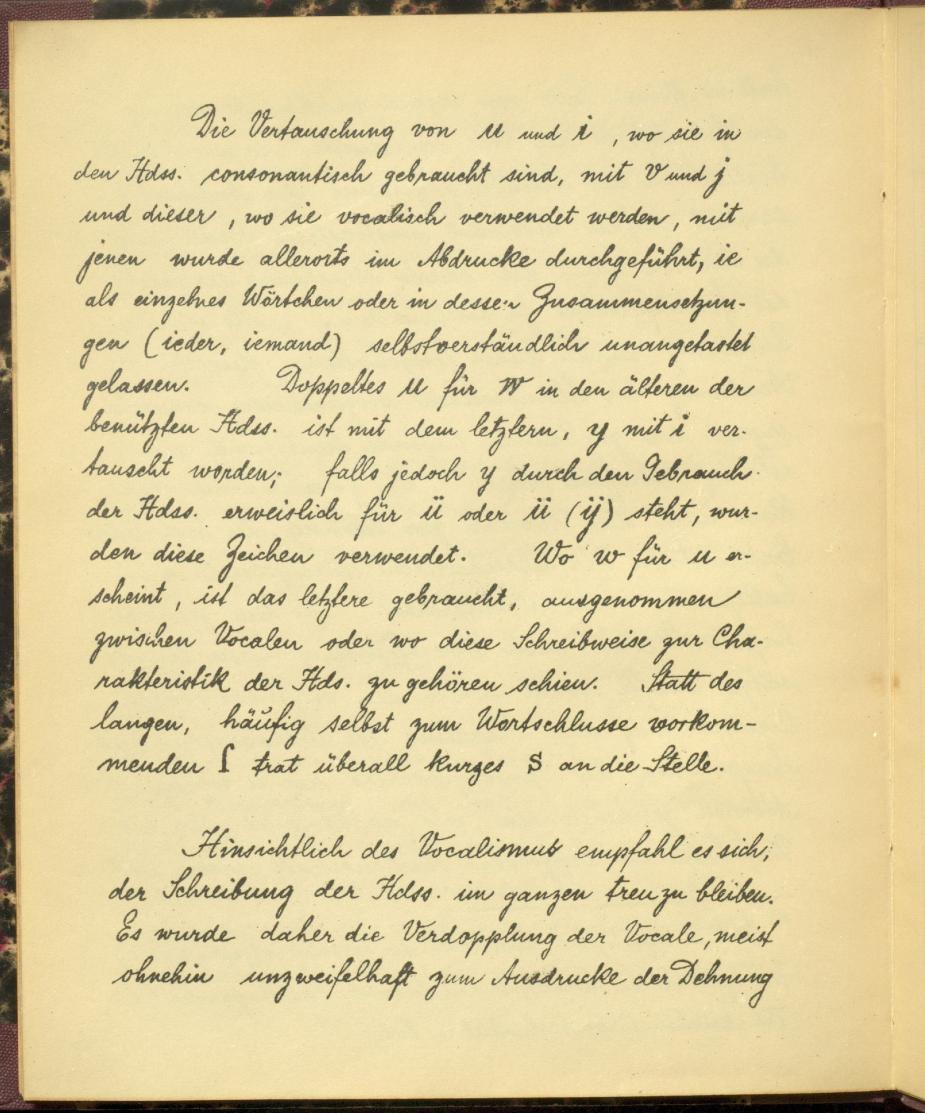 Die Vertauschung von u und i , wo sie in
den Hdss. consonantisch gebraucht sind, mit v und j
und dieser , wo sie vocalisch verwendet werden , mit
jenen wurde allerorts im Abdrucke durchgeführt, ie
als einzelnes Wörtchen oder in dessen Zusammensetzun-
gen (ieder, iemand) selbstverständlich unangetastet
gelassen. Doppeltes u für w in den älteren der
benützten Hdss. ist mit dem letztern, y mit i ver-
tauscht worden; falls jedoch y durch den Gebrauch
der Hdss. erweislich für ü oder üi (ÿ) steht, wur-
den diese Zeichen verwendet. Wo w für u er-
scheint , ist das letztere gebraucht, ausgenommen
zwischen Vocalen oder wo diese Schreibweise zur Cha-
rakteristik der Hds. zu gehören schien. Statt des
langen, häufig selbst zum Wortschlusse vorkom-
menden ſ trat überall kurzes s an die Stelle.
Hinsichtlich des Vocalismus empfahl es sich,
der Schreibung der Hdss. im ganzen treu zu bleiben.
Es wurde daher die Verdopplung der Vocale, meist
ohnehin unzweifelhaft zum Ausdrucke der Dehnung